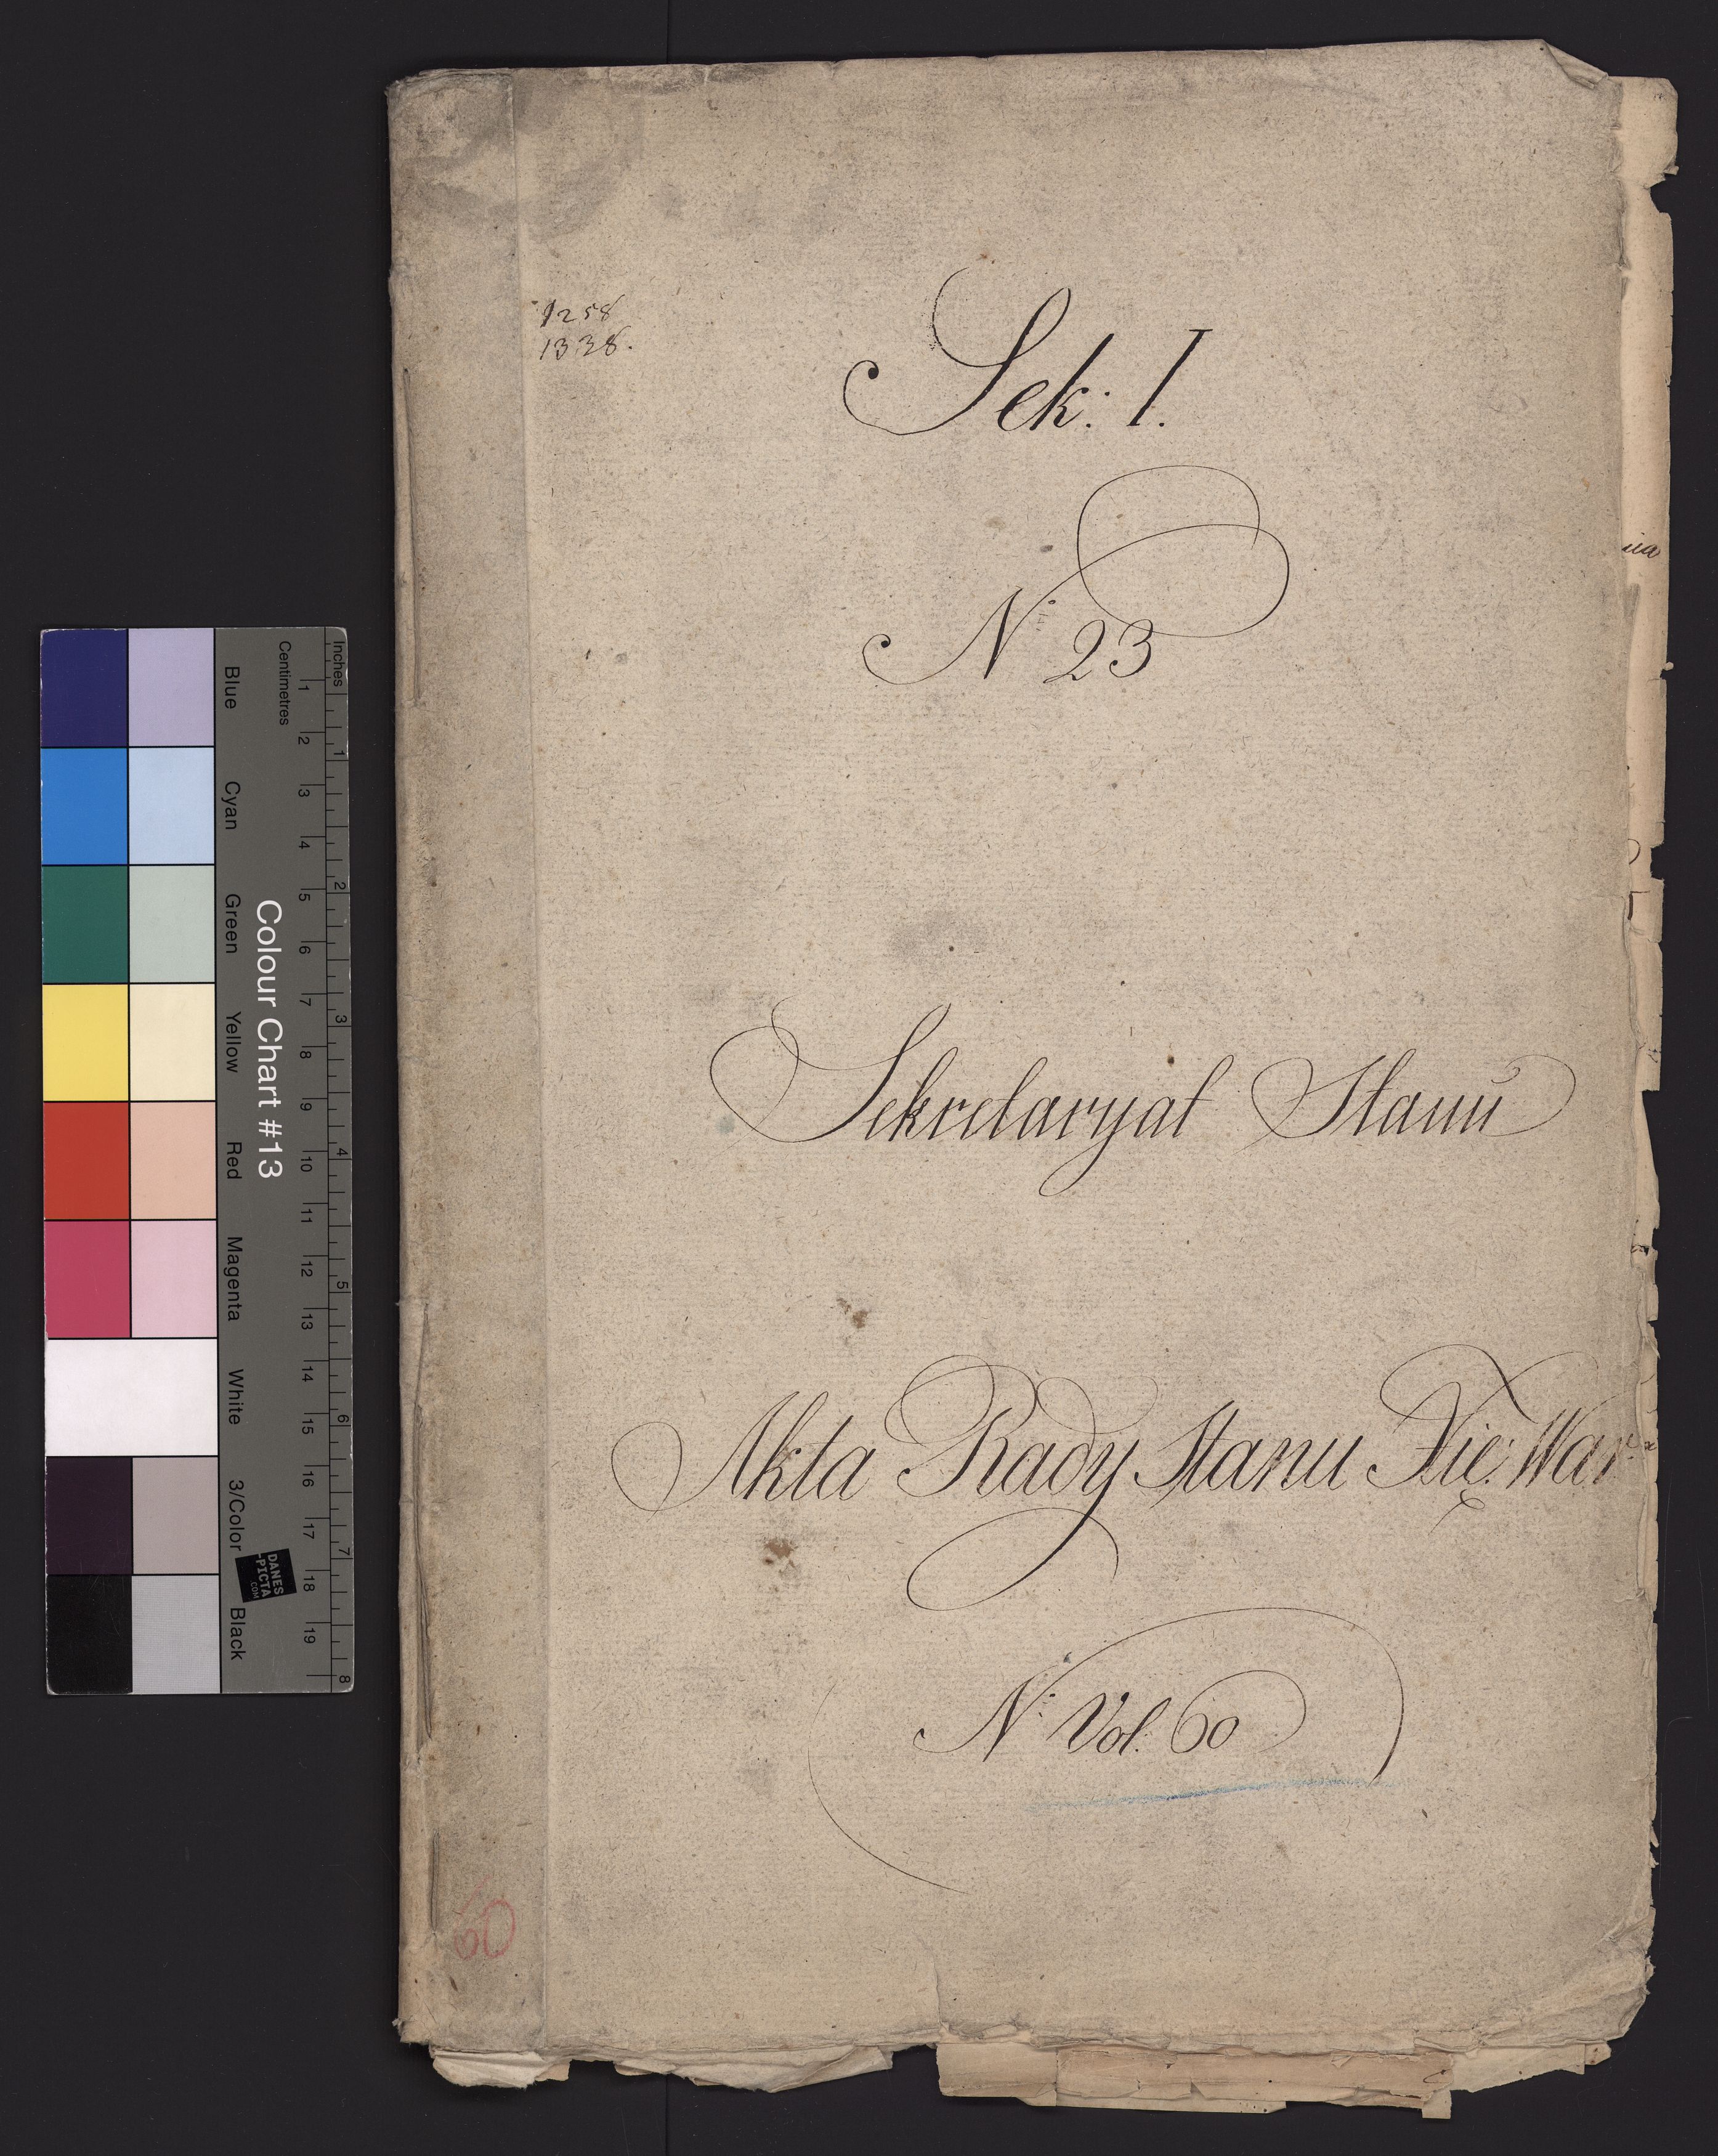 1258
1338.
Sek: I.
N 23
Sekretaryat Stanu
Akta Rady Stanu Xię: War:
N: Vol. 60
60
nia
Inches
Centimetres
1 2 3 4 5 6 7 8
1 2 3 4 5 6 7 8 9 10 11 12 13 14 15 16 17 18 19
Colour Chart #13
Blue Cyan Green Yellow Red Magenta White 3/Color Black
DANES
-PICTA
.COM